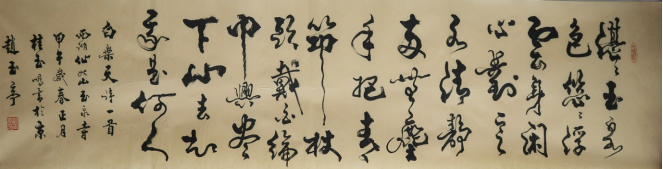 湛々玉泉
色悠々浮
云身闲
心對定
水清静
两無塵
手把青
筇杖
頭戴白綸
巾興尽
下山去知
我是何人
白樂天詩一首
玉泉寺
甲午歲春正月
書於京
趙玉亭